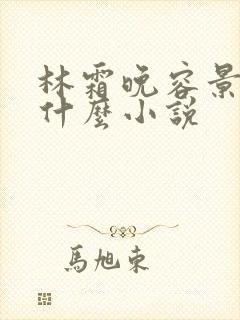 林霜晚容景
什麼小說
馬旭東